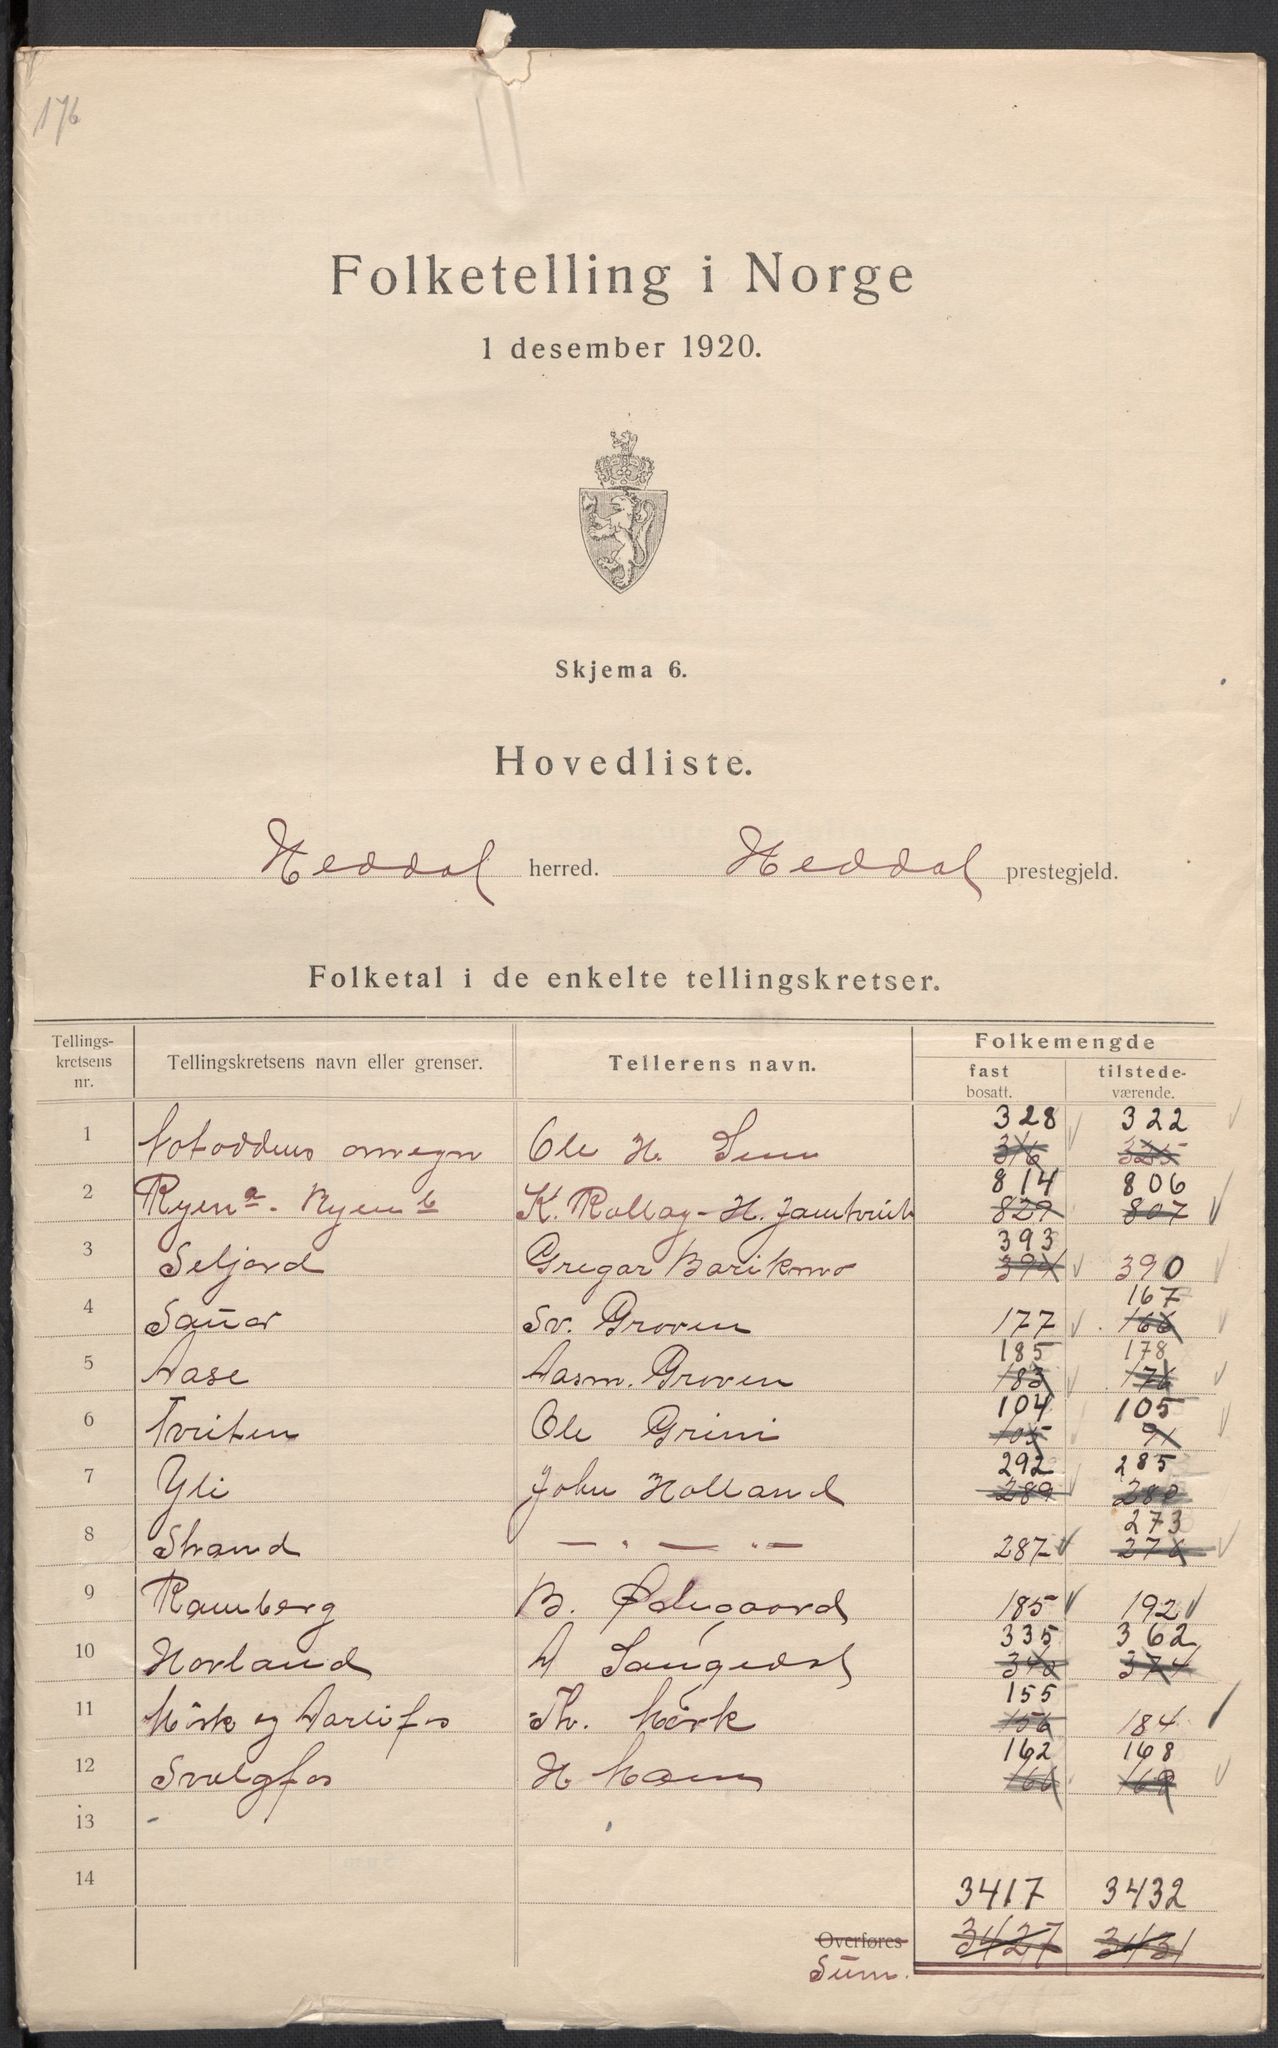 176
Folketelling i Norge
1 desember 1920.
Skjema 6.
Hovedliste.
Heddal herred. Heddal prestegjeld.
Folketal i de enkelte tellingskretser.
Tellings-kretsens nr. Tellingskretsens navn eller grenser. Tellerens navn. Folkemengde
fast bosatt. tilstede-værende.
328 322
1 Notoddens omegn Ole H. Sem 316 325
814 806
2 Ryen a - Ryen b K. Rollag - H. Jamtveit 829 807
393
3 Seljord Gregar Barikmo 394 390
167
4 Sauar Sv. Groven 177 166
185 178
5 Aase Aasm. Groven 183 176
104 105
6 Tveiten Ole Grini 105 91
292 285
7 Yli John Holland 289 280
273
8 Strand — . — . — 287 276
9 Ramberg B. Ødegaard 185 192
335 362
10 Hovland A 340 374
155
11 Mörk og Aarlifos Th. Mörk 156 184
162 168
12 Svælgfos H 166 169
13
14
3417 3432
Overføres 3427 3431
Sum.